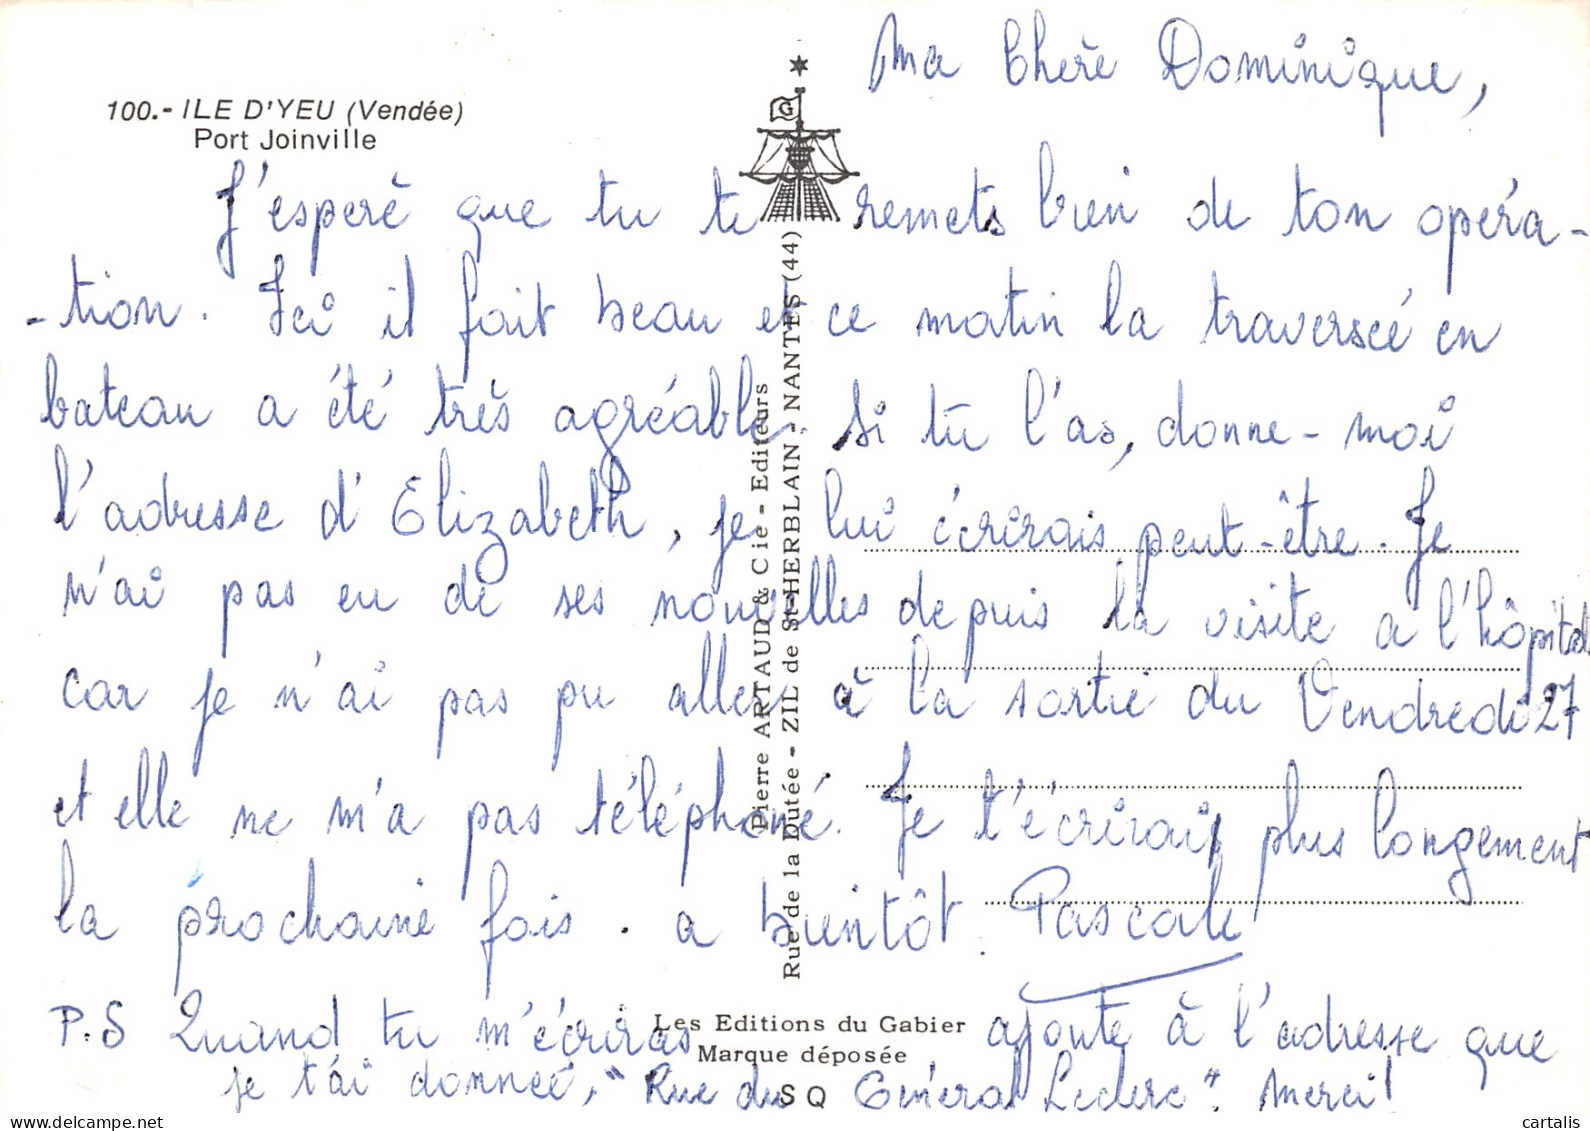 Ma Chère Dominique,
100.- ILE D'YEU (Vendée)
Port Joinville
J'espère que tu te remets bien de ton opéra-
-tion. Ici il fait beau et ce matin la traversée en
bateau a été très agréable. Si tu l'as, donne-moi
l'adresse d'Elizabeth, je lui écrirais peut-être. Je
n'ai pas eu de ses nouvelles depuis la visite a l'hôpital
car je n'ai pas pu aller à la sortie du Vendredi 27
et elle ne m'a pas téléphoné. Je t'écrirais plus longement
la prochaine fois. a bientôt. Pascale
P.S Quand tu m'écriras, ajoute à l'adresse que
je t'ai donnée, "Rue du Général Leclerc". Merci!
G
Pierre ARTAUD & Cie - Editeurs
Rue de la Dutée - ZIL de St-HERBLAIN - NANTES (44)
Les Editions du Gabier
Marque déposée
S Q
cartalis
delcampe.net